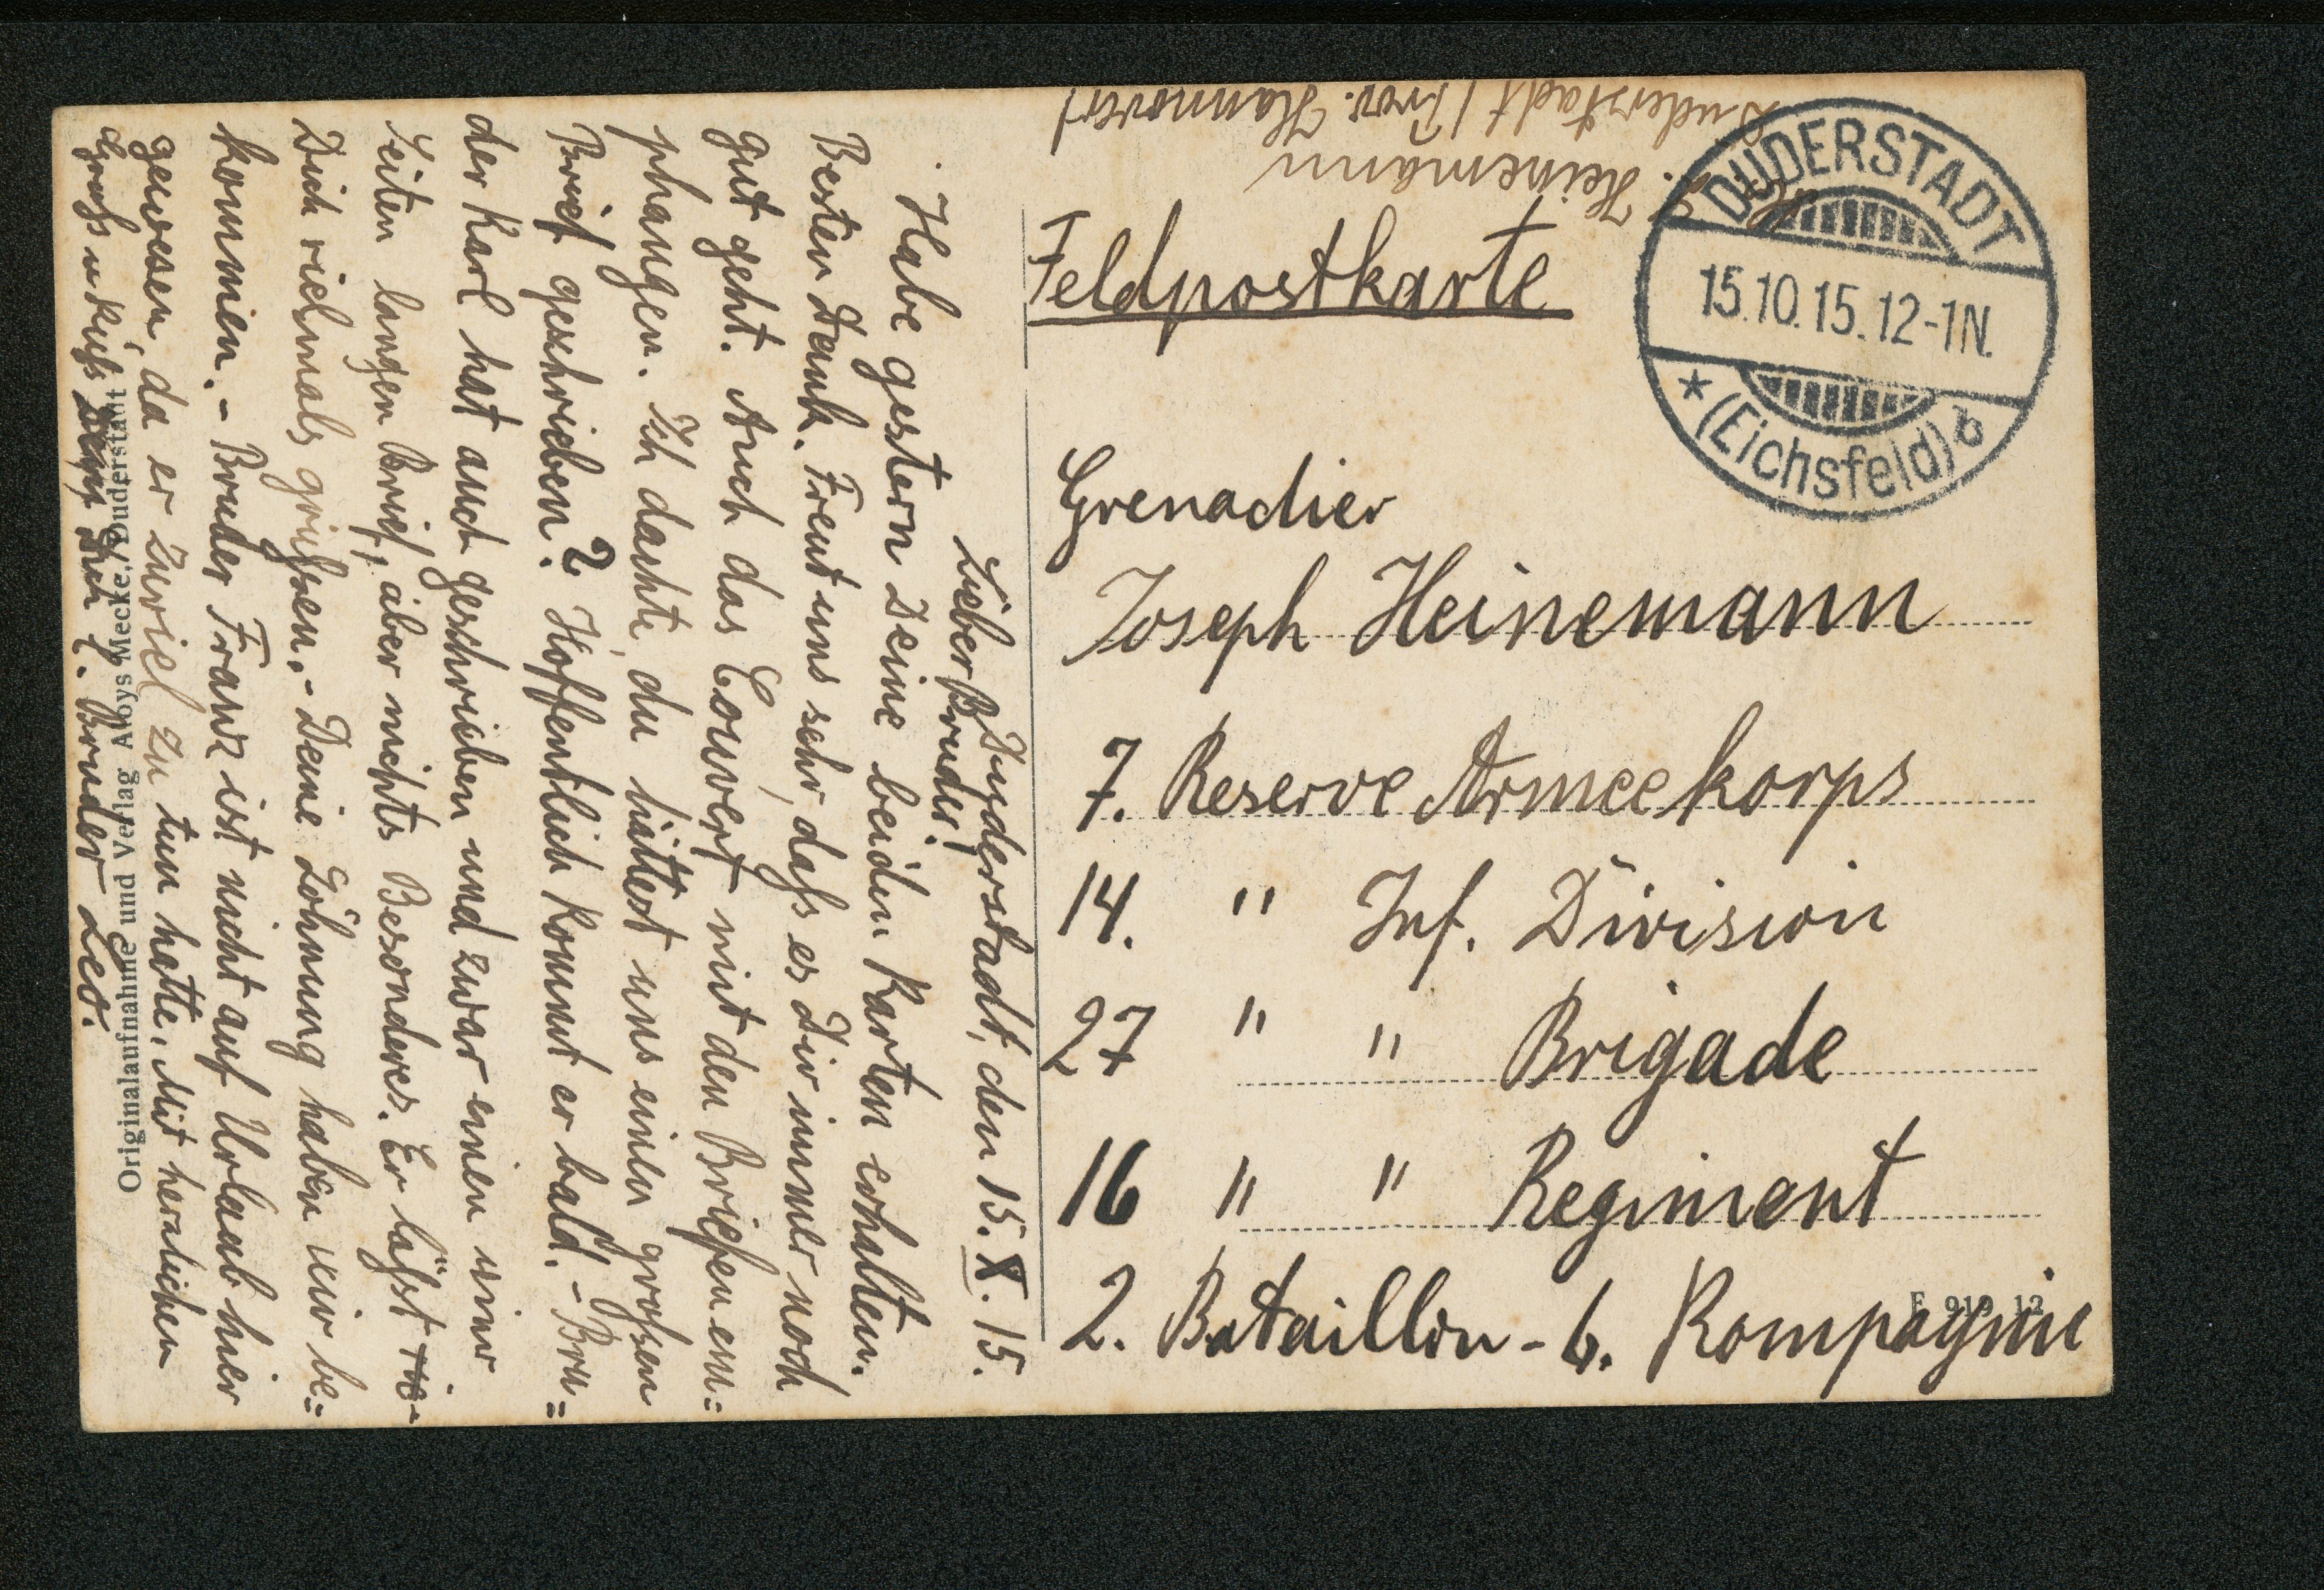 Duderstadt, den 15. X. 15.
Lieber Bruder!
Habe gestern Deine beiden Karten erhalten.
Besten Dank. Freut uns sehr, daß es Dir immer noch
gut geht. Auch das Couvert mit den Briefen em=
phangen. Ich dachte, du hättest uns einen großen
Brief geschrieben? Hoffentlich kommt er bald. - Bru=
der Karl hat auch geschrieben und zwar einen
Seiten langen Brief, aber nichts Besonderes. Er läßt
Dich vielmals grüßen. - Deine Löhnung haben wir be=
kommen. - Bruder Franz ist nicht auf Urlaub hier
gewesen, da er zuviel zu tun hatte. Mit herzlichen
Gruß u Kuß Dein Bruder Leo.
Originalaufnahme und Verlag Aloys Mecke, Duderstadt
Heinemann
Duderstadt (Prov. Hannover)
DUDERSTADT
15.10.15.12-1N.
* (Eichsfeld) b
Feldpostkarte
Grenadier
Joseph Heinemann
7. Reserve Armeekorps
14. " Inf. Division
27 " " Brigade
16 " " Regiment
2. Bataillon - 6. Kompagnie